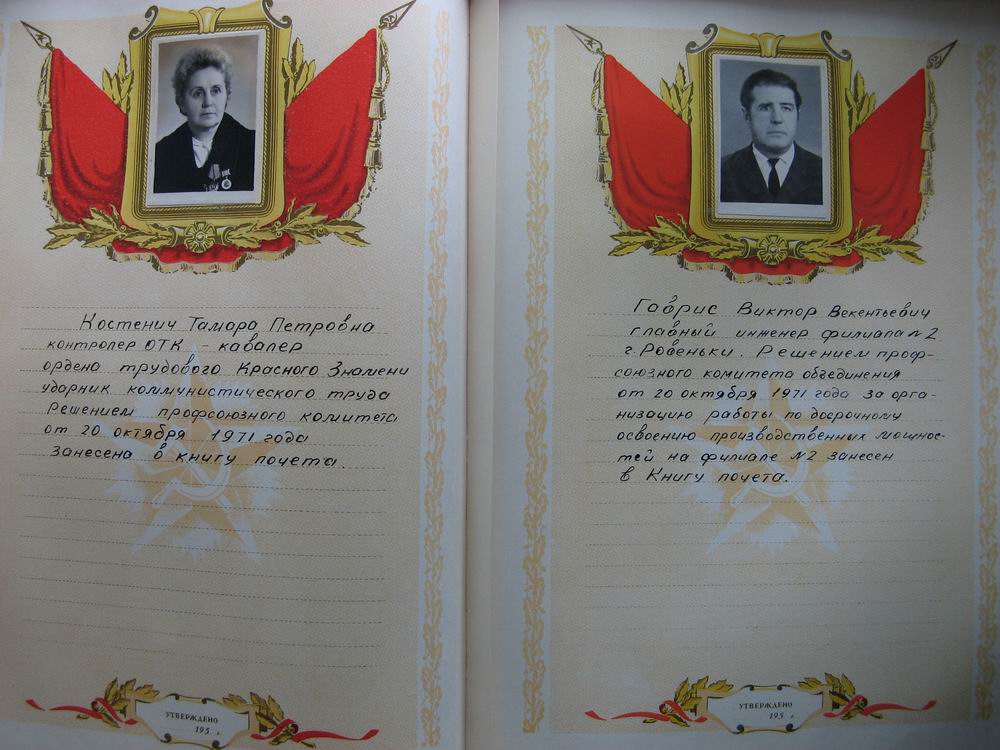 Костенич Тамара Петровна
контролер ОТК - кавалер
ордена трудового Красного Знамени
ударник коммунистического труда
Решением профсоюзного комитета
от 20 октября 1971 года
занесена в книгу почета.
УТВЕРЖДЕНО
195 г.
Гаврис Виктор Векентьевич
главный инженер филиала №2
г. Ровеньки. Решением проф-
союзного комитета объединения
от 20 октября 1971 года за орга-
низацию работы по досрочному
освоению производственных мощнос-
тей на филиале №2 занесен
в Книгу почета.
УТВЕРЖДЕНО
195 г.